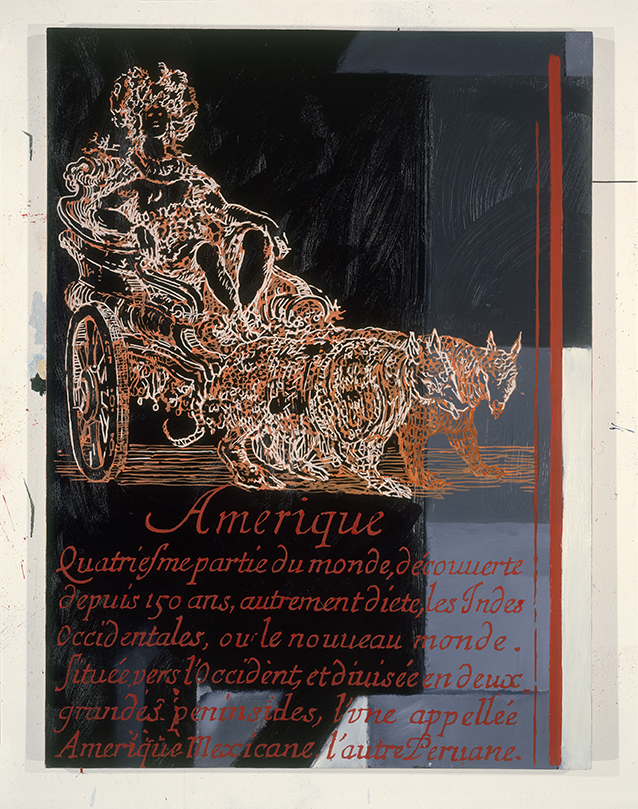 Amerique
Quatriesme partie du monde, découuerte
depuis 150 ans, autrement diete, les Indes
Occidentales, ou le nouueau monde.
Située vers l'Occident, et diuisée en deux
grandes peninsides, l'vne appellée
Amerique Mexicane l'autre Peruane.